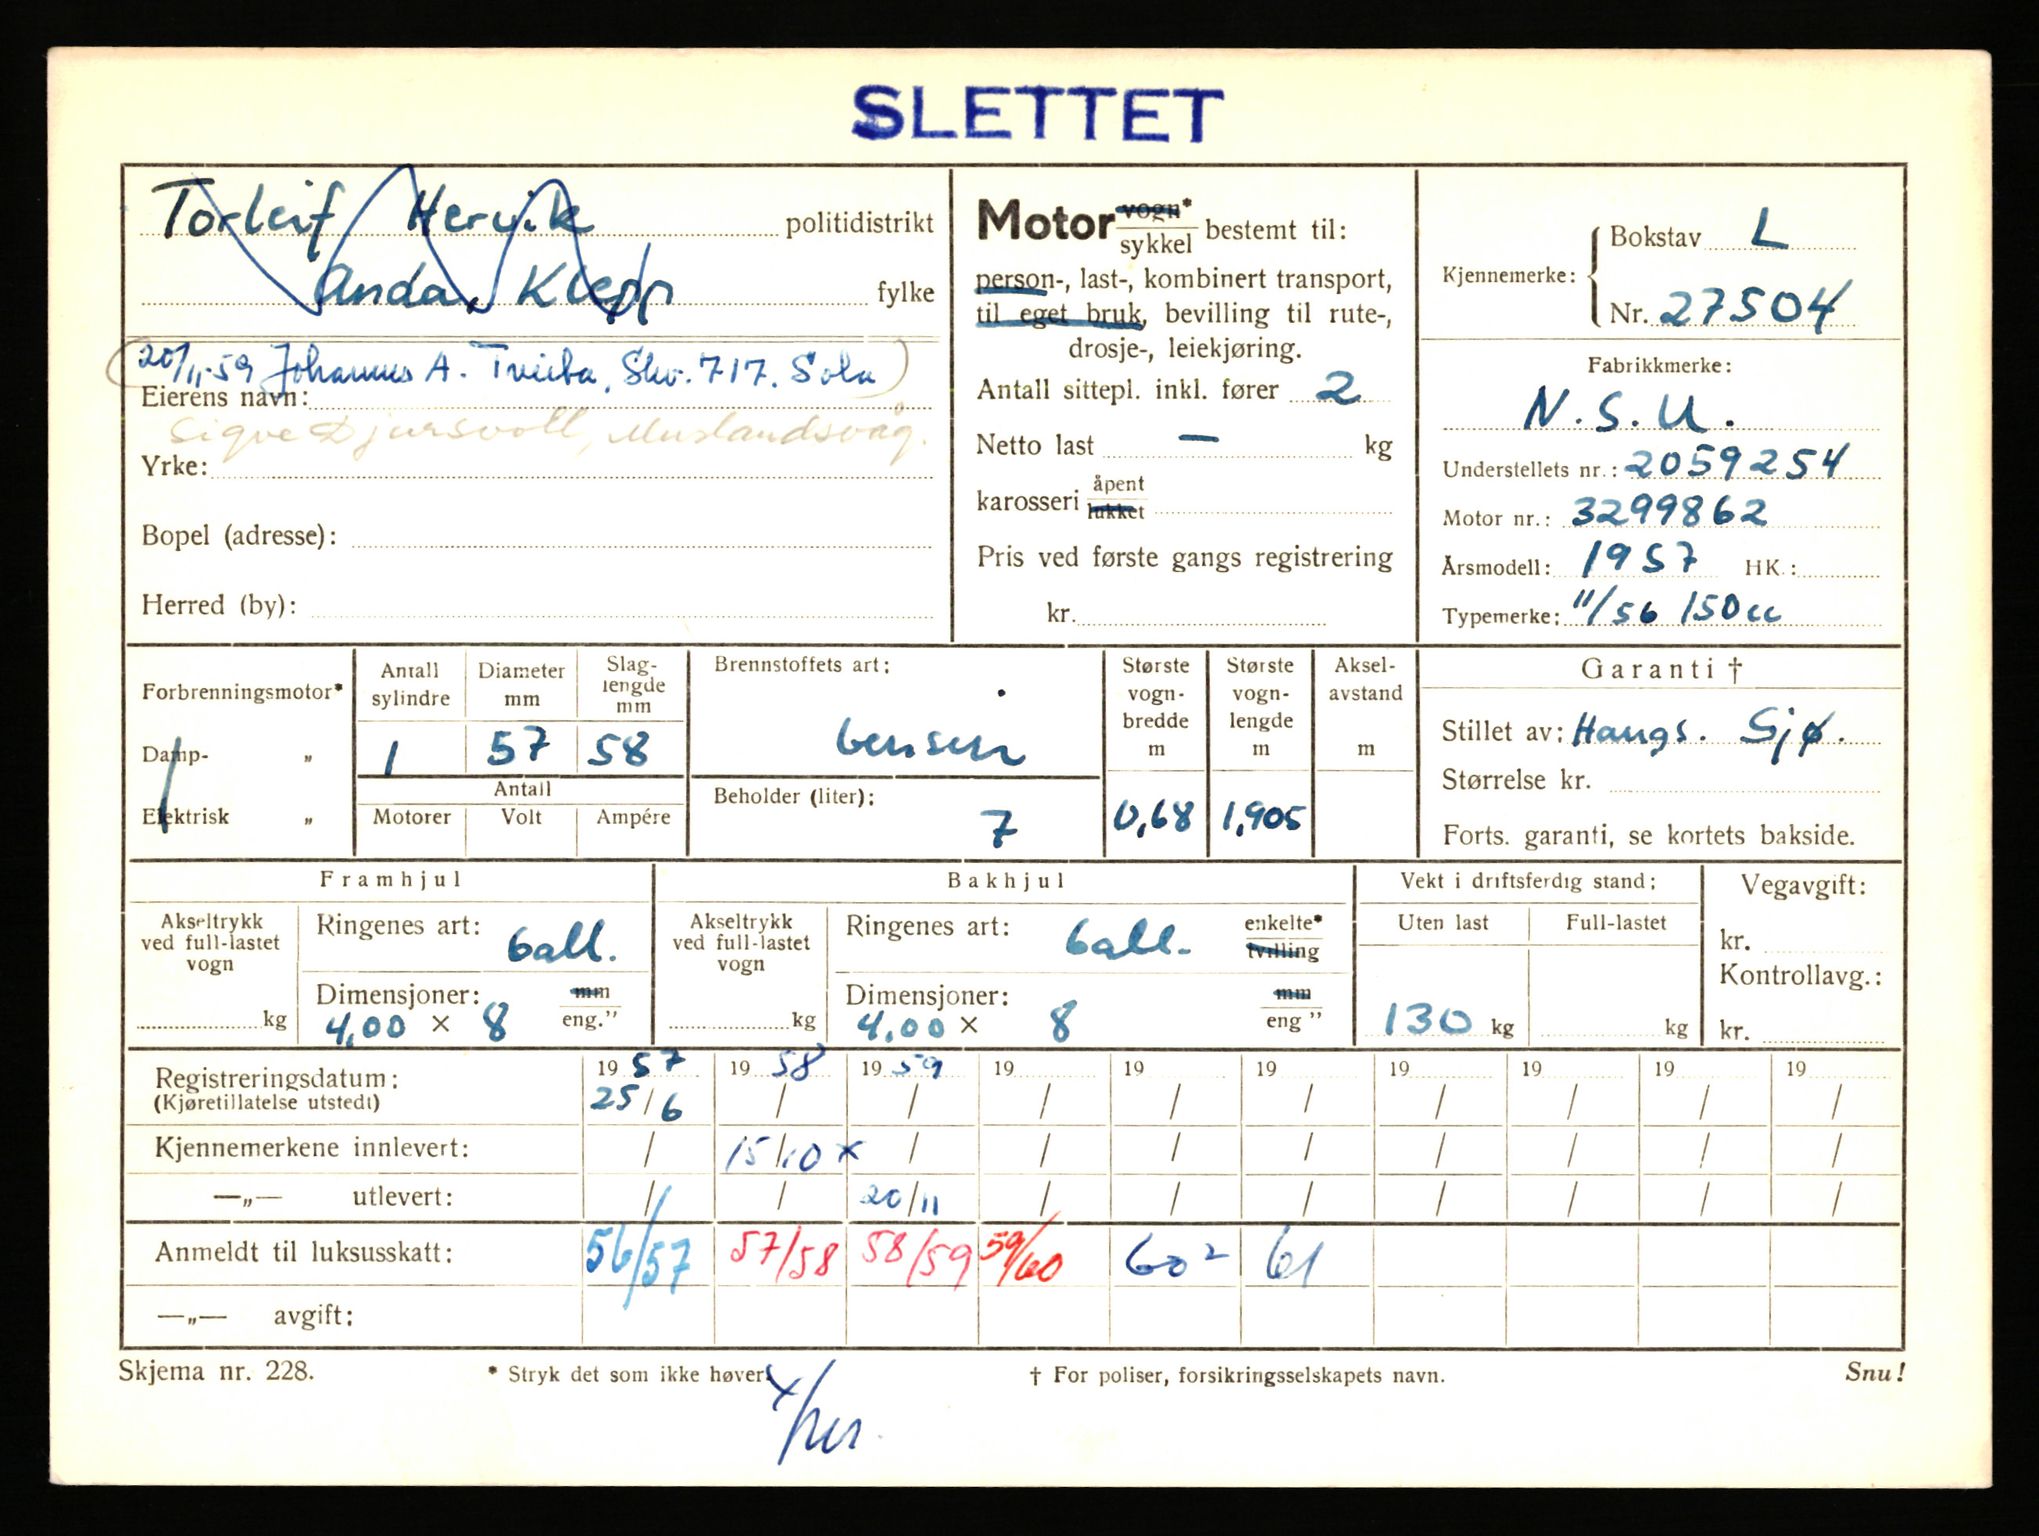 SLETTET
Torleif Hervik politidistrikt
Anda, Klepp fylke
20/11-59 Johannes A. Tveita, Skv. 717. Sola
Eierens navn:
Sigve Djursvoll,
Yrke:
Bopel (adresse):
Herred (by):
Motor vogn* sykkel bestemt til:
person-, last-, kombinert transport,
til eget bruk, bevilling til rute-,
drosje-, leiekjøring.
Antall sittepl. inkl. fører 2
Netto last — kg
karosseri åpent lukket
Pris ved første gangs registrering
kr.
Kjennemerke: Bokstav L
Nr. 27504
Fabrikkmerke:
N.S.U.
Understellets nr.: 2059254
Motor nr.: 3299862
Årsmodell: 1957 HK.:
Typemerke: 11/56 150cc
Forbrenningsmotor*
Damp- „
Elektrisk „
Antall sylindre 1
Diameter mm 57
Slag-lengde mm 58
Antall
Motorer Volt Ampére
Brennstoffets art:
bensin
Beholder (liter):
7
Største vogn-bredde m 0,68
Største vogn-lengde m 1,905
Aksel-avstand m
Garanti †
Stillet av: Haugs. Sjø.
Størrelse kr.
Forts. garanti, se kortets bakside.
Framhjul
Akseltrykk ved full-lastet vogn kg
Ringenes art: ball.
Dimensjoner: mm
4,00 × 8 eng."
Bakhjul
Akseltrykk ved full-lastet vogn kg
Ringenes art: ball. enkelte* tvilling
Dimensjoner: mm
4,00 × 8 eng "
Vekt i driftsferdig stand:
Uten last Full-lastet
130 kg kg
Vegavgift:
kr.
Kontrollavg.:
kr.
Registreringsdatum: 19 57 19 58 19 59 19 19 19 19 19 19 19
(Kjøretillatelse utstedt) 25/6 / / / / / / / / /
Kjennemerkene innlevert: / 15/10 x / / / / / / / /
—„— utlevert: / / 20/11 / / / / / / /
Anmeldt til luksusskatt: 56/57 57/58 58/59 59/60 60² 61
—„— avgift:
Skjema nr. 228. * Stryk det som ikke høver † For poliser, forsikringsselskapets navn. Snu!